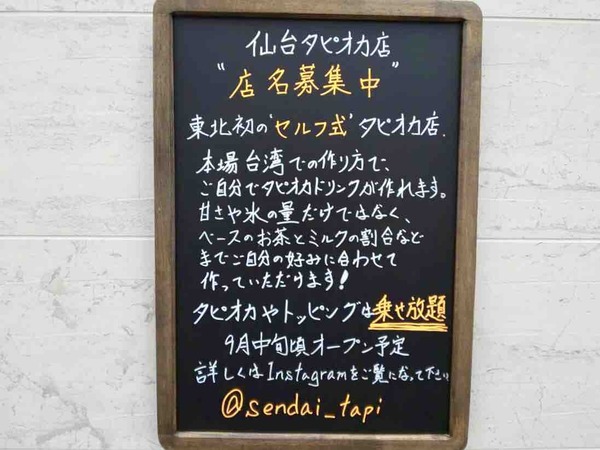 仙台タピオカ店
"店名募集中"
東北初の'セルフ式'タピオカ店.
本場台湾での作り方で、
ご自分でタピオカドリンクが作れます。
甘さや氷の量だけではなく、
ベースのお茶とミルクの割合など
までご自分の好みに合わせて
作っていただけます!
タピオカやトッピングは乗せ放題
9月中旬頃オープン予定
詳しくはInstagramをご覧になって下さい
@sendai_tapi